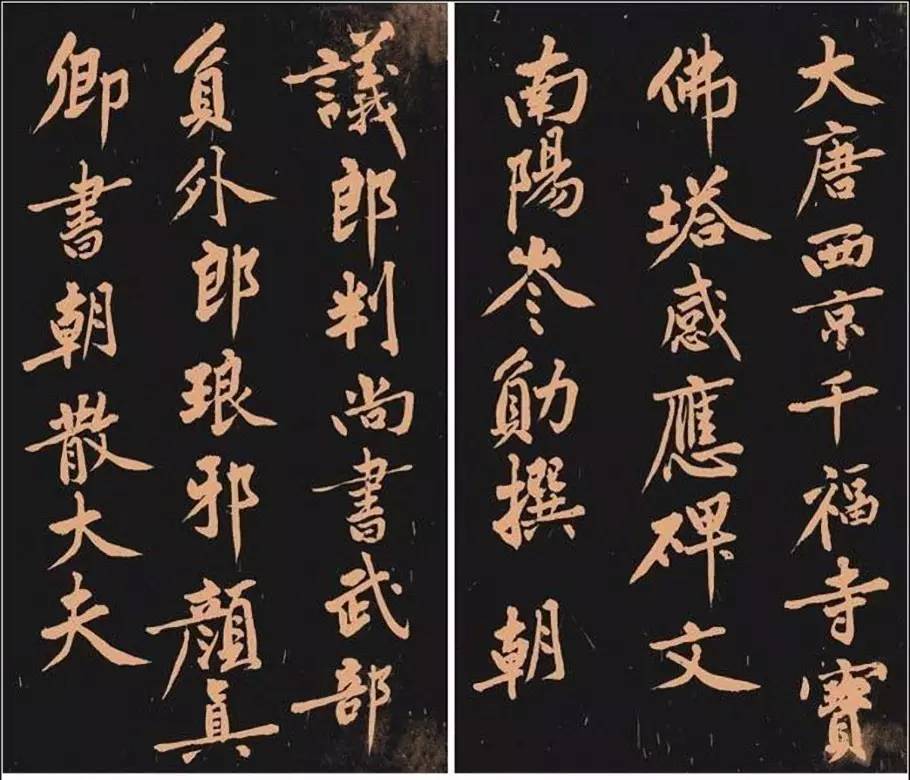 大唐西京千福寺寶
佛塔感應碑文
南陽岑勛撰 朝
議郎判尚書武部
員外郎琅邪顏真
卿書朝散大夫